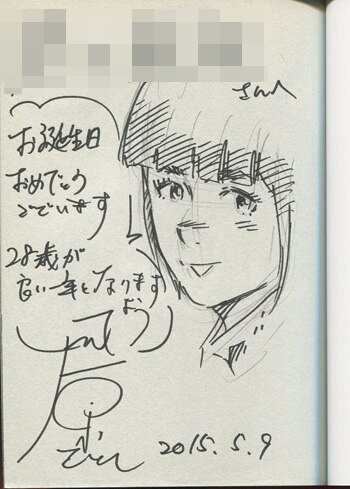 さんへ
お誕生日
おめでとう
ございます
28歳が
良い一年となります
よう
2015.5.9